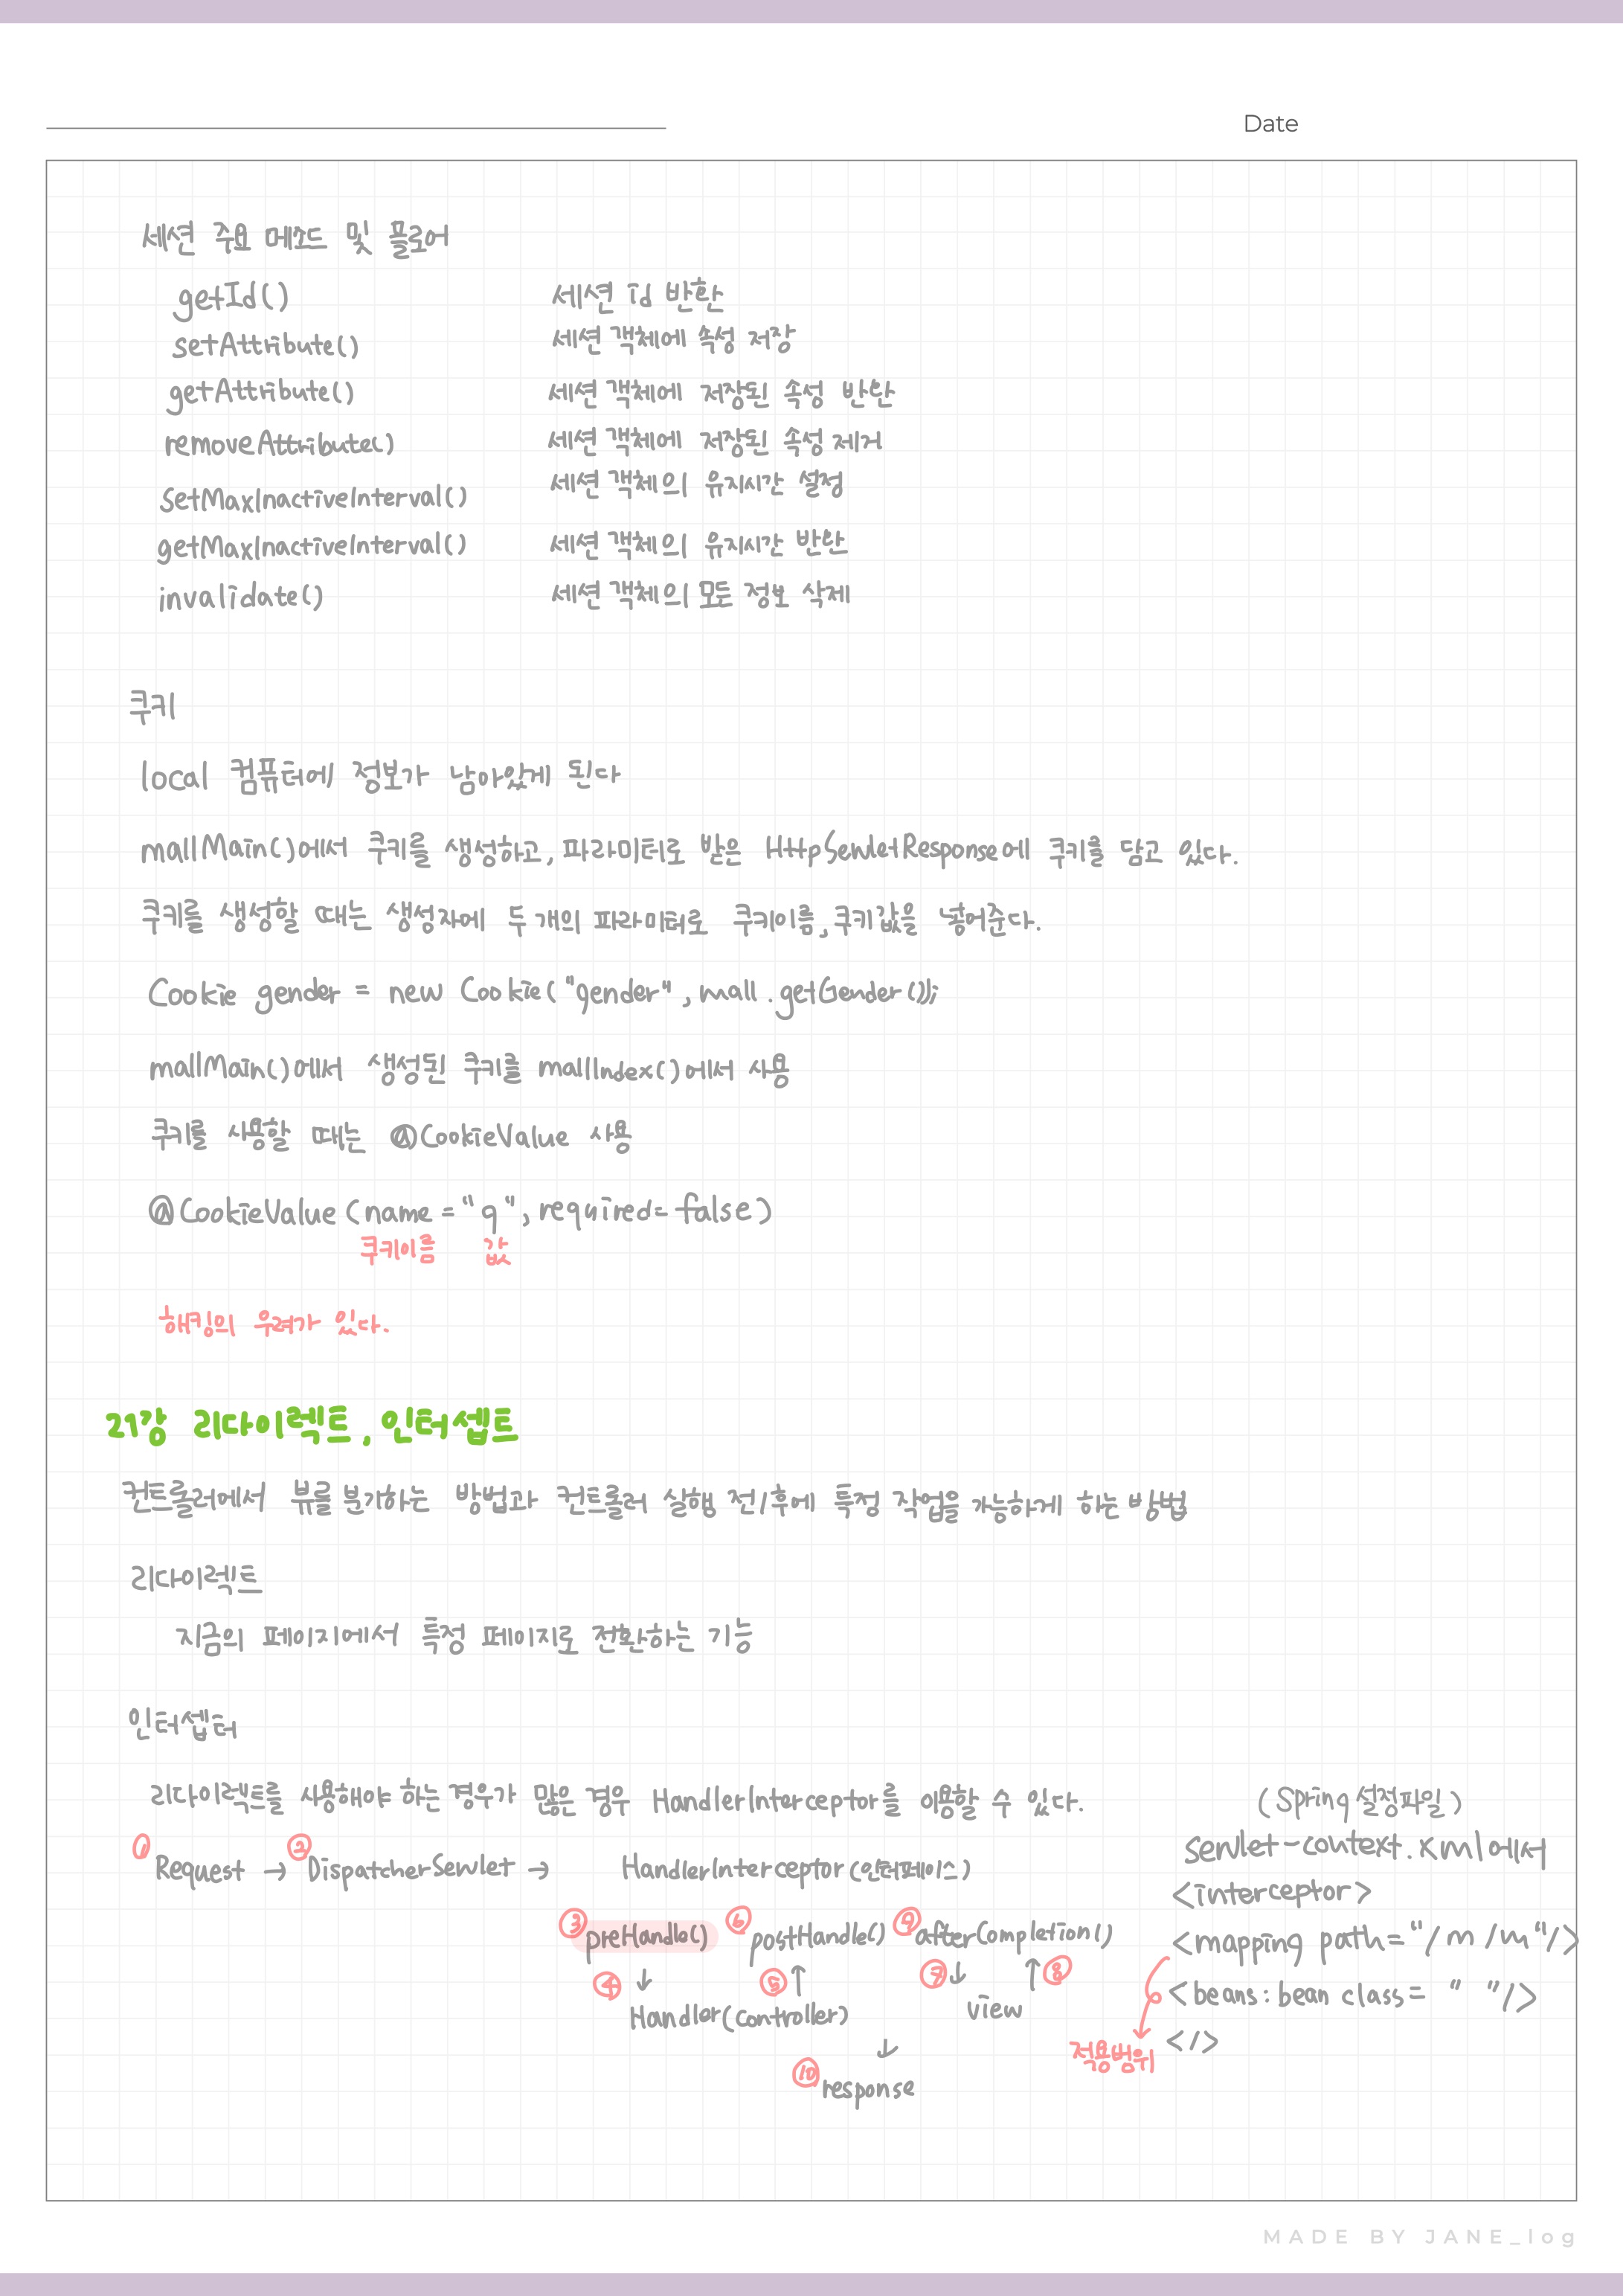 Date
세션 주요 메소드 및 플로어
getId() 세션 id 반환
setAttribute() 세션 객체에 속성 저장
getAttribute() 세션 객체에 저장된 속성 반환
removeAttribute() 세션 객체에 저장된 속성 제거
setMaxInactiveInterval() 세션 객체의 유지시간 설정
getMaxInactiveInterval() 세션 객체의 유지시간 반환
invalidate() 세션 객체의 모든 정보 삭제
쿠키
local 컴퓨터에 정보가 남아있게 된다
mallMain()에서 쿠키를 생성하고, 파라미터로 받은 HttpServletResponse에 쿠키를 담고 있다.
쿠키를 생성할 때는 생성자에 두 개의 파라미터로 쿠키이름, 쿠키값을 넣어준다.
Cookie gender = new Cookie("gender", mall.getGender());
mallMain()에서 생성된 쿠키를 mallIndex()에서 사용
쿠키를 사용할 때는 @CookieValue 사용
@CookieValue (name = "g", required=false)
쿠키이름 값
해킹의 우려가 있다.
21강 리다이렉트, 인터셉트
컨트롤러에서 뷰를 분기하는 방법과 컨트롤러 실행 전/후에 특정 작업을 가능하게 하는 방법
리다이렉트
지금의 페이지에서 특정 페이지로 전환하는 기능
인터셉터
리다이렉트를 사용해야 하는 경우가 많은 경우 HandlerInterceptor를 이용할 수 있다.
(Spring 설정파일)
servlet-context.xml에서
① Request → ② DispatcherServlet → HandlerInterceptor(인터페이스)
<interceptor>
③ preHandle() ⑥ postHandle() ⑨ afterCompletion()
<mapping path="/m/m"/>
④ ↓ ⑤ ↑ ⑦ ↓ ↑ ⑧
<beans:bean class= " "/>
Handler(Controller) view
</>
적용범위
↓
⑩ response
MADE BY JANE_log